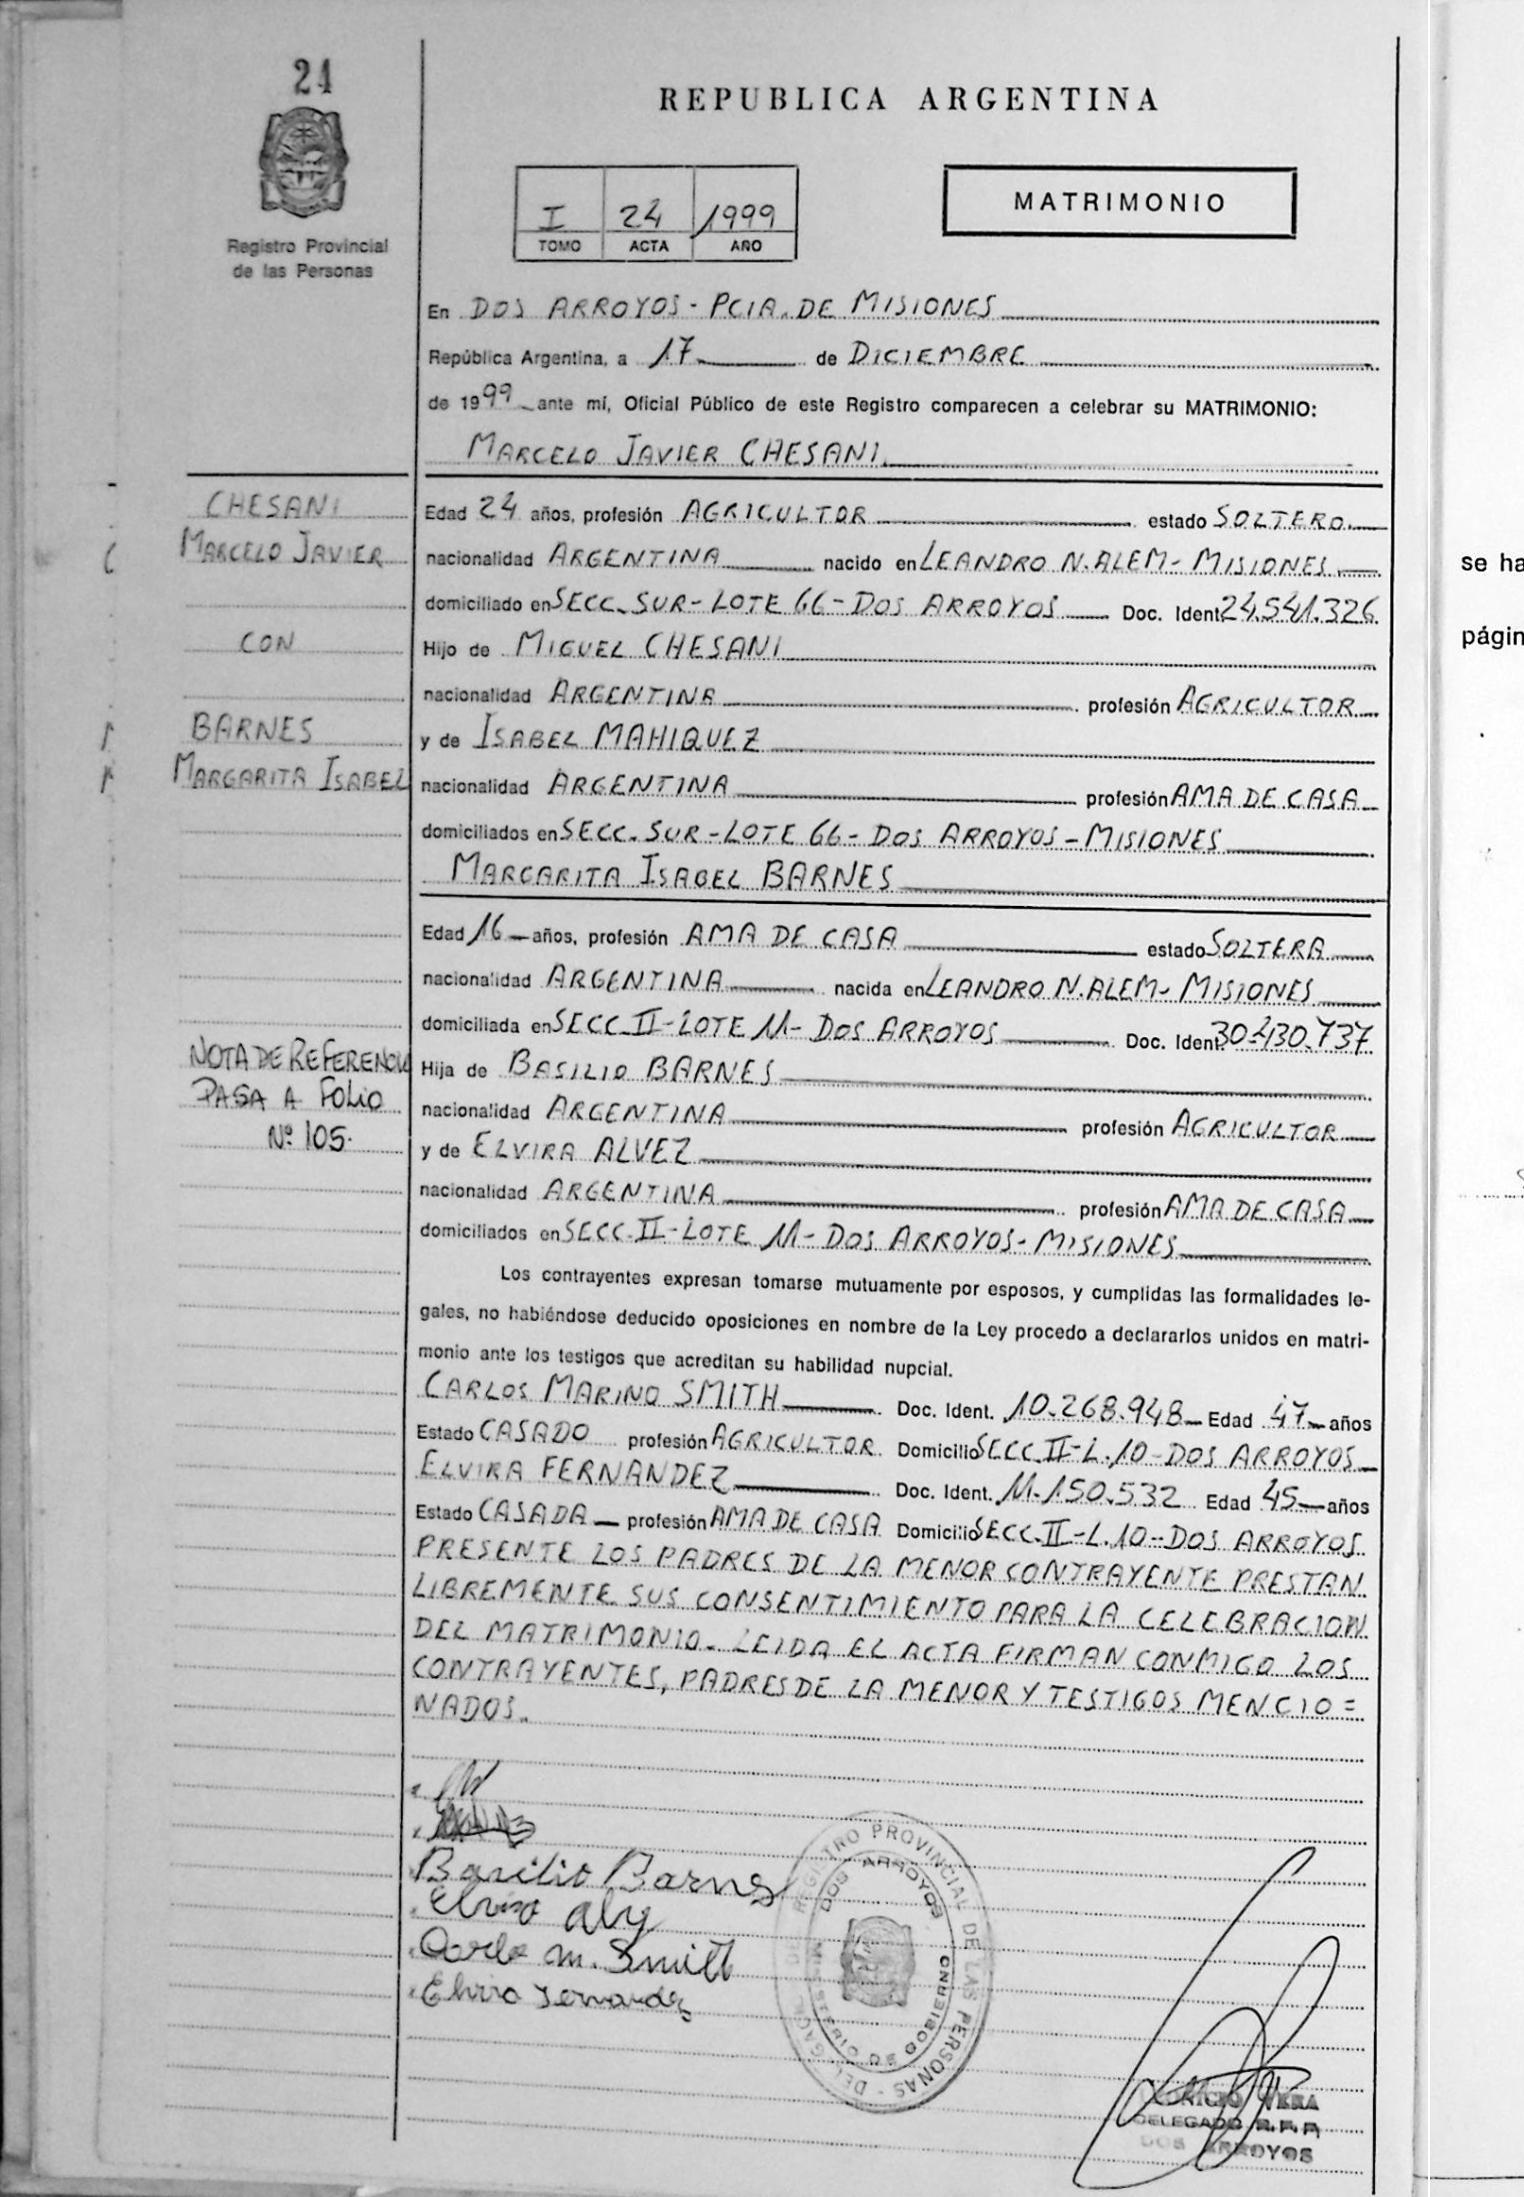 24
Registro Provincial
de las Personas
REPUBLICA ARGENTINA
I 24 1999
TOMO ACTA AÑO
MATRIMONIO
En DOS ARROYOS - PCIA. DE MISIONES
República Argentina, a 17 de DICIEMBRE
de 1999 ante mí, Oficial Público de este Registro comparecen a celebrar su MATRIMONIO:
MARCELO JAVIER CHESANI
CHESANI
MARCELO JAVIER
CON
BARNES
MARGARITA ISABEL
NOTA DE REFERENCIA
PASA A FOLIO
Nº 105.
Edad 24 años, profesión AGRICULTOR estado SOLTERO
nacionalidad ARGENTINA nacido en LEANDRO N. ALEM - MISIONES
domiciliado en SECC. SUR - LOTE 66 - DOS ARROYOS Doc. Ident. 24.541.326
Hijo de MIGUEL CHESANI
nacionalidad ARGENTINA profesión AGRICULTOR
y de ISABEL MAHIQUEZ
nacionalidad ARGENTINA profesión AMA DE CASA
domiciliados en SECC. SUR - LOTE 66 - DOS ARROYOS - MISIONES
MARGARITA ISABEL BARNES
Edad 16 años, profesión AMA DE CASA estado SOLTERA
nacionalidad ARGENTINA nacida en LEANDRO N. ALEM - MISIONES
domiciliada en SECC. II - LOTE 11 - DOS ARROYOS Doc. Ident.
Hija de BASILIO BARNES
nacionalidad ARGENTINA profesión AGRICULTOR
y de ELVIRA ALVEZ
nacionalidad ARGENTINA profesión AMA DE CASA
domiciliados en SECC. II - LOTE 11 - DOS ARROYOS - MISIONES
Los contrayentes expresan tomarse mutuamente por esposos, y cumplidas las formalidades le-
gales, no habiéndose deducido oposiciones en nombre de la Ley procedo a declararlos unidos en matri-
monio ante los testigos que acreditan su habilidad nupcial.
CARLOS MARINO SMITH Doc. Ident. 10.268.948 Edad 47 años
Estado CASADO profesión AGRICULTOR Domicilio SECC. II - L. 10 - DOS ARROYOS
ELVIRA FERNANDEZ Doc. Ident. 11.150.532 Edad 45 años
Estado CASADA profesión AMA DE CASA Domicilio SECC. II - L. 10 - DOS ARROYOS
PRESENTE LOS PADRES DE LA MENOR CONTRAYENTE PRESTAN
LIBREMENTE SUS CONSENTIMIENTO PARA LA CELEBRACION
DEL MATRIMONIO. LEIDA EL ACTA FIRMAN CONMIGO LOS
CONTRAYENTES, PADRES DE LA MENOR Y TESTIGOS MENCIO=
NADOS.
Basilio Barnes
Carlo M. Smith
Elvira Fernandez
REGISTRO PROVINCIAL DE LAS PERSONAS -
DOS ARROYOS
MINISTERIO DE GOBIERNO
VERA
DELEGADO R.P.P.
DOS ARROYOS
se ha
págin